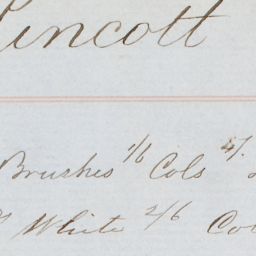 incott
Brushes 1/6 Cols 4/.
White 2/6 Co